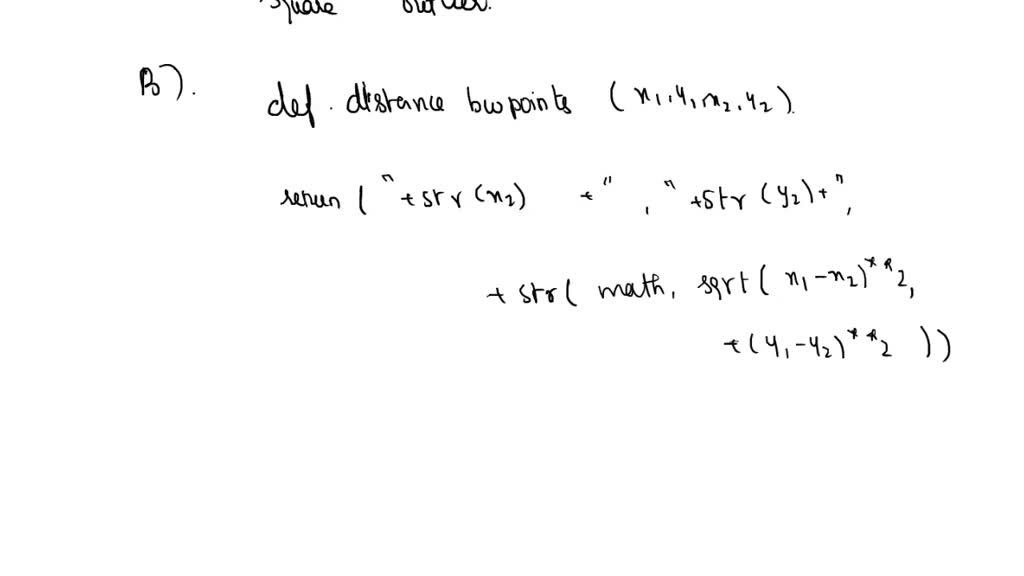 square outlet.
B).
def. distance bwpoints (x1,y1,x2,y2).
return ( " +str(x2) +" , " +str(y2)+",
+ str( math. sqrt( x1-x2)**2,
+(y1-y2)**2 ))